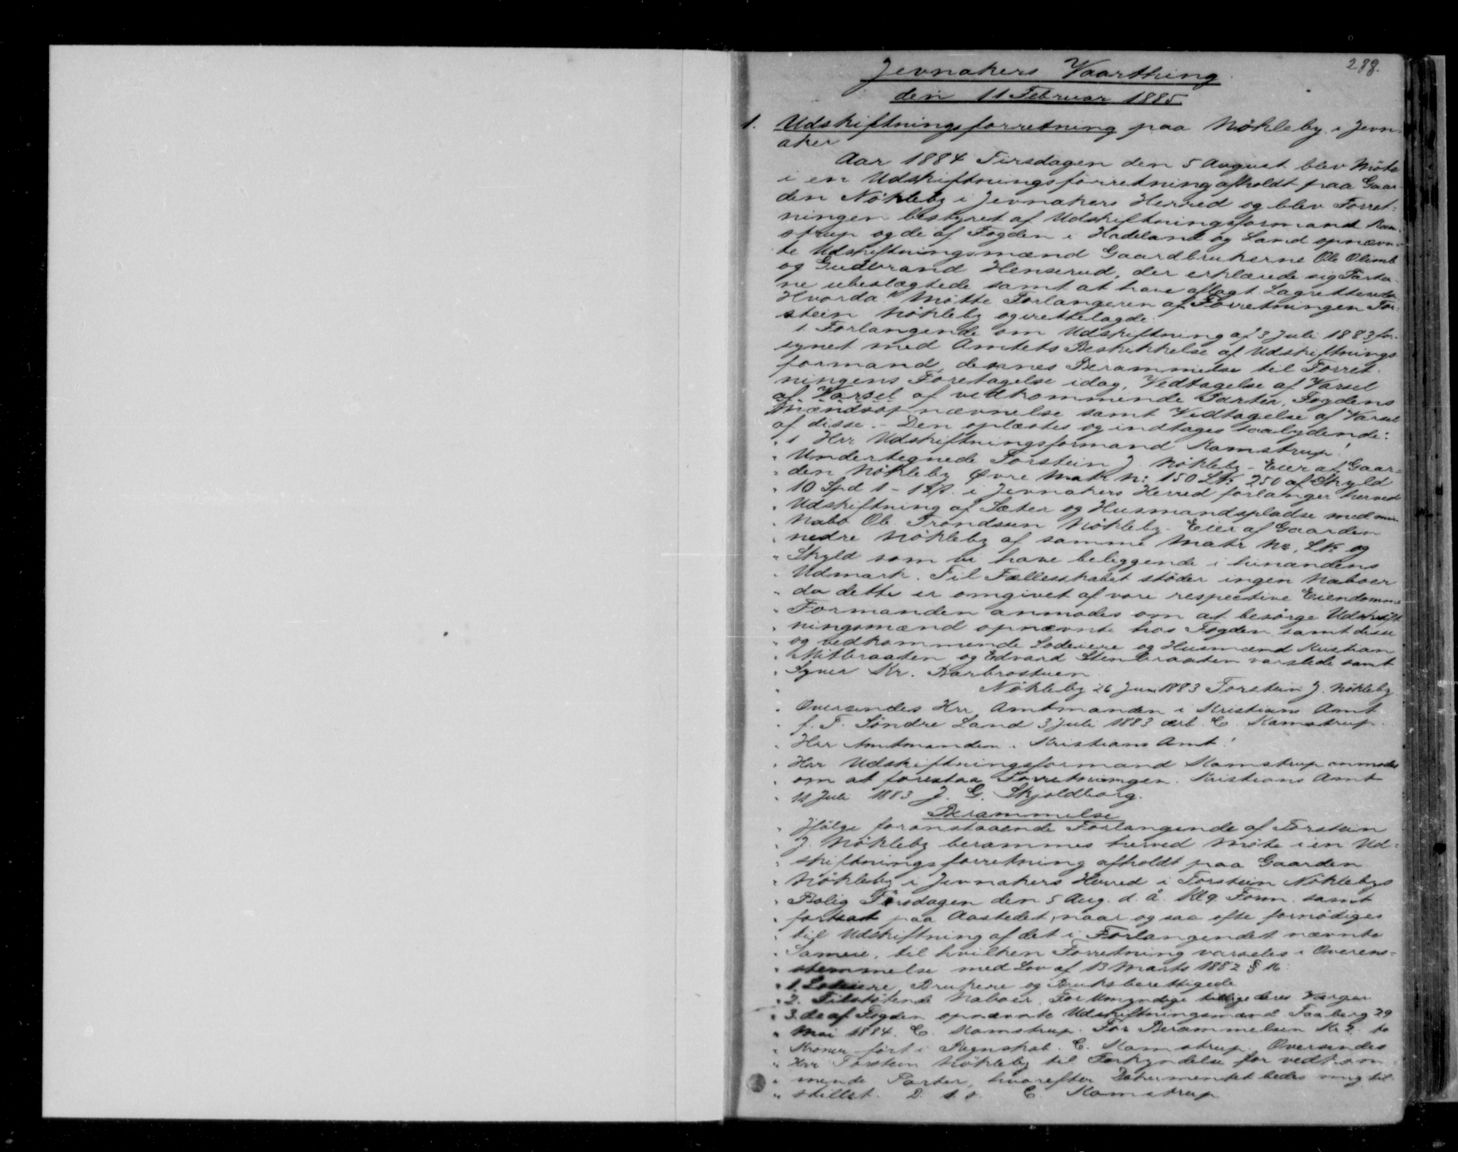 288.
Jevnakers Vaarthing
den 11 Februar 1885
1. Udskiftningsforretning paa Nökleby i Jevn-
aker
Aar 1884 Tirsdagen den 5 August blev Möte
i en Udskiftningsforretning afholdt paa Gaar-
den Nökleby i Jevnakers Herred og blev Forret-
ningen bestyret af Udskiftningsformand Kam-
strup og de af Fogden i Hadeland og Land opnævn-
te Udskiftningsmænd Gaardbrukerne Ole Olimb
og Gudbrand Henserud, der erklærede sig Parter-
ne ubeslægtede samt at have aflagt Lagretteed
Hvorda Mötte Forlangeren af Forretningen Tor-
stein Nökleby og irettelagde:
1 Forlangende om Udskiftning af 3 Juli 1883 for-
synet med Amtets Beskikkelse af Udskiftnings
formand, dennes Berammelse til Forret-
ningens Foretagelse idag, Vedtagelse af Varsel
af Varsel af vedkommende Parter, Fogdens
Mændsopnævnelse samt Vedtagelse af Varsel
af disse. - Den oplæstes og indtages saalydende:
" 1 Herr Udskiftningsformand Kamstrup!
" Undertegnede Torstein J. Nökleby - Eier af Gaar-
" den Nökleby Øvre Matr. No: 150 LNo 250 af Skyld
" 10 Spd 1 - 12 β i Jevnakers Herred forlanger herved
" Udskiftning af Sæter og Husmandspladse med min
" Nabo Ole Trondsen Nökleby - Eier af Gaarden
" nedre Nökleby af samme Matr No, LNo og
" Skyld som vi have beliggende i hinandens
" Udmark. Til Fællesskabet stöder ingen Naboer
" da dette er omgivet af vore respective Eiendomme
" Formanden anmodes om at besörge Udskift-
" ningsmænd opnævnte hos Fogden samt disse
" og vedkommende Lodeiere og Husmænd Kristian
" Mitbraaten og Edvard Stenbraaten varslede samt
" Syver Kr. Karbrostuen
" Nökleby 26 Juni 1883 Torstein J. Nökleby
" Oversendes Hrr. Amtmanden i Kristians Amt
" f. T. Söndre Land 3 Juli 1883 ærb. C. Kamstrup.
" Herr Amtmanden i Kristians Amt!
" Herr Udskiftningsformand Kamstrup anmodes
" om at forestaa Forretningen. Kristians Amt
" 12 Juli 1883 J. G. Skjoldborg.
Berammelse
" Ifölge foranstaaende Forlangende af Torstein
" J. Nökleby berammes herved Möte i en Ud-
" skiftningsforretning afholdt paa Gaarden
" Nökleby i Jevnakers Herred i Torstein Nöklebys
" Bolig Tirsdagen den 5 Aug. d. å. Kl. 9 Form. samt
" fortsat paa Aastedet, naar og saa ofte fornödiges
" til Udskiftning af det i Forlangendet nævnte
" Sameie, til hvilken Forretning varsles i Overens-
" stemmelse med Lov af 13 Marts 1882 § 16:
" 1. Lodeiere, Brukere og Bruksberettigede
" 2. Tilstötende Naboer, For Umyndige tillige deres Værger
" 3. de af Fogden opnævnte Udskiftningsmænd Faaberg 29
" Mai 1884. C. Kamstrup. For Berammelsen Kr 2. to
" Kroner fört i Regnskab. C. Kamstrup. Oversendes
" Herr Torstein Nökleby til Forkyndelse for vedkom-
" mende Parter, hvorefter Dokumentet bedes mig til-
" stillet. D. s. s. C Kamstrup